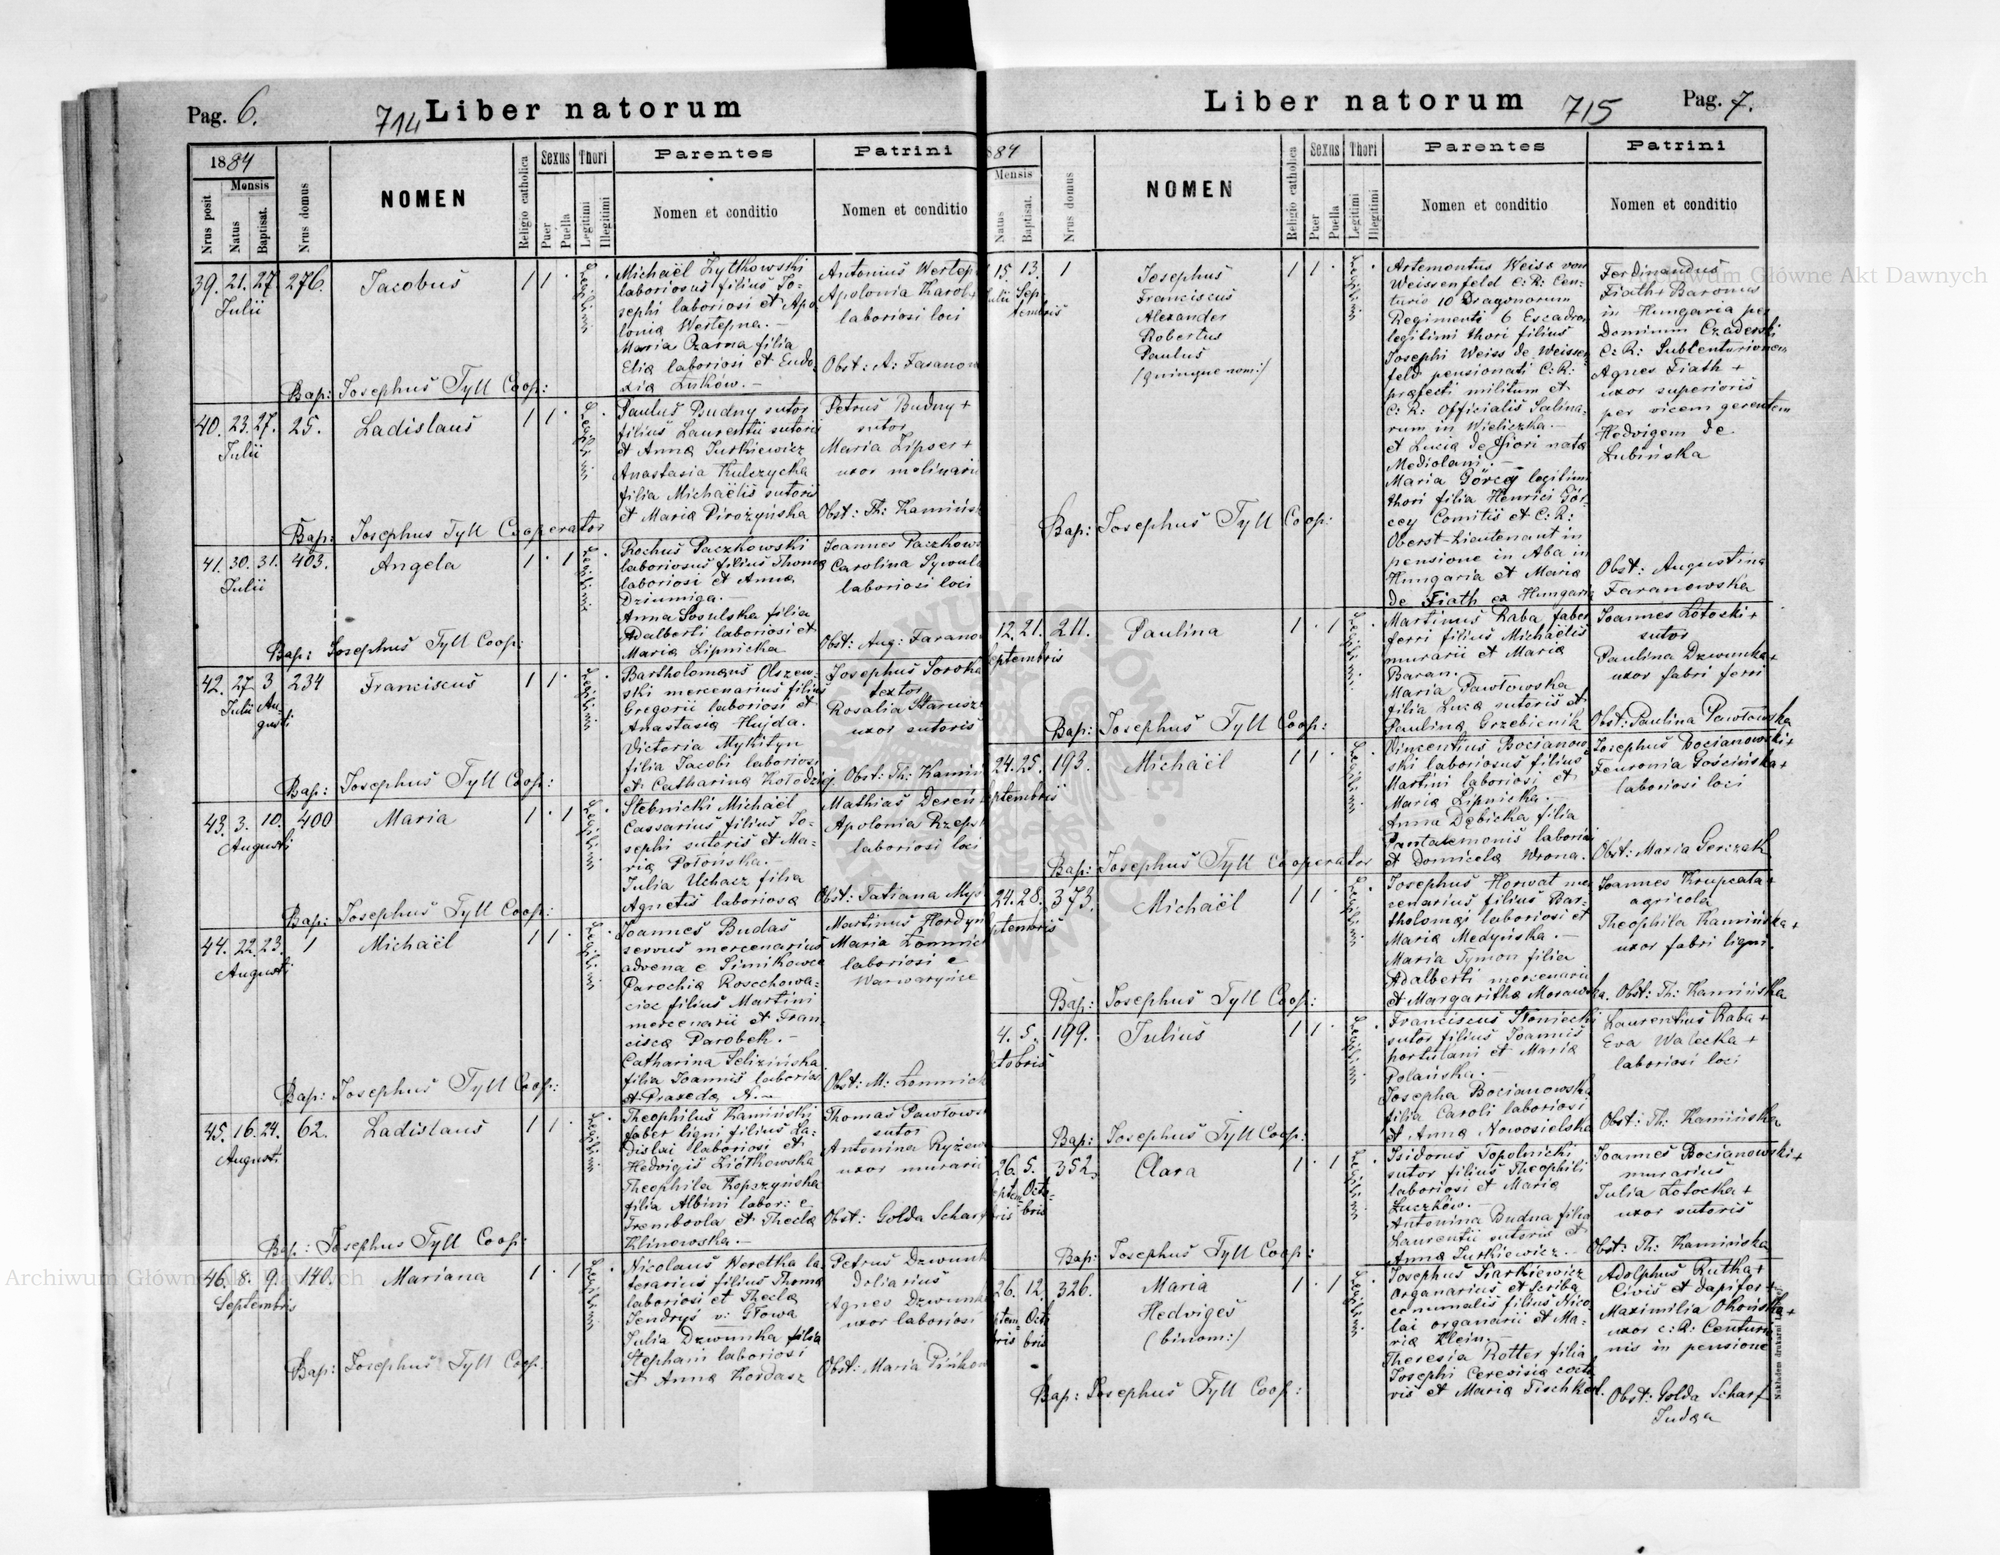 Pag. 6.
714
Liber natorum
1884
Nrus posit
Mensis
Natus
Baptisat.
Nrus domus
NOMEN
Religio catholica
Sexus
Puer
Puella
Thori
Legitimi
Illegitimi
Parentes
Nomen et conditio
Patrini
Nomen et conditio
39. 21. 27. 276. Jacobus 1 1 .
Julii
Legitimi
Michaël Żytkowski
laboriosus filius Jo-
sephi laboriosi et Apo
lonia Wertepna. —
Maria Czarna filia
Elia laboriosi et Eudo-
xia Łuków. —
Antonius Wertep
Apolonia Karol +
laboriosi loci
Obst: A: Faranow
Bap: Josephus Tyll Coop:
40. 23. 27. 25. Ladislaus 1 1 .
Julii
Legitimi
Paulus Budny sutor
filius Laurentii sutoris
et Anna Jurkiewicz
Anastasia Kulczycka
filia Michaëlis sutoris
et Maria Pirożyńska
Petrus Budny +
sutor
Maria Lipser +
uxor molinarii
Obst: Th: Kamińsk
Bap: Josephus Tyll Cooperator
41. 30. 31. 403. Angela 1 . 1
Julii
Legitimi
Rochus Paczkowski
laboriosus filius Thoma
laboriosi et Anna
Dziumiga. —
Anna Sosulska filia
Adalberti laboriosi et
Maria Lipnicka
Joannes Paczkows
Carolina Sywula
laboriosi loci
Obst: Aug: Farano
Bap: Josephus Tyll Coop:
42. 27. 3 234 Franciscus 1 1 .
Julii Au-
gusti
Legitimi
Bartholomæus Olszew-
ski mercenarius filius
Gregorii laboriosi et
Anastasia Hujda.
Victoria Mykityn
filia Jacobi laboriosi
et Catharina Kołodziej.
Josephus Soroka
textor
Rosalia Starusz
uxor sutoris
Obst: Th: Kamiń
Bap: Josephus Tyll Coop:
43. 3. 10. 400 Maria 1 . 1
Augusti
Legitimi
Stebnicki Michaël
Cassarius filius Jo-
sephi sutoris et Ma-
ria Połońska. —
Julia Uchacz filia
Agnetis laboriosa
Mathias Dereń
Apolonia Rzeps
laboriosi loci
Obst: Tatiana Mys
Bap: Josephus Tyll Coop:
44. 22. 23. 1 Michaël 1 1 .
Augusti
Legitimi
Joannes Budas
servus mercenarius
advena e Simikowce
Parochia Rosochowa-
ciec filius Martini
mercenarii et Fran-
cisca Parobek. —
Catharina Selizińska
filia Joannis laboriosi
et Praxeda A. —
Martinus Hordyn
Maria Łomnic
laboriosi e
Warwaryńce
Obst: M: Łomnick
Bap: Josephus Tyll Coop:
45. 16. 24. 62. Ladislaus 1 1 .
Augusti
Legitimi
Theophilus Kamiński
faber ligni filius La-
dislai laboriosi et
Hedvigis Ziółkowska
Theophila Kopczyńska
filia Albini labor: e
Trembovla et Thecla
Klinowska. —
Thomas Pawłows
sutor
Antonina Ryżew
uxor murarii
Obst: Golda Scharf
Bap: Josephus Tyll Coop:
46. 8. 9. 140. Mariana 1 . 1
Septembris
Legitimi
Nicolaus Weretka la-
terarius filius Thoma
laboriosi et Thecla
Jendrys v: Głowa
Julia Dzwunka filia
Stephani laboriosi
et Anna Kordasz
Petrus Dzwunk
doliarius
Agnes Dzwunk
uxor laboriosi
Obst: Maria Pińkow
Bap: Josephus Tyll Coop:
Liber natorum
715
Pag. 7.
84
Mensis
Natus
Baptisat.
Nrus domus
NOMEN
Religio catholica
Sexus
Puer
Puella
Thori
Legitimi
Illegitimi
Parentes
Nomen et conditio
Patrini
Nomen et conditio
15. 13. 1 Josephus 1 1 .
Julii Sep-
tembris
Franciscus
Alexander
Robertus
Paulus
(quinque nom:)
Legitimi
Artemontus Weiss von
Weissenfeld C: R: Cen-
turio 10 Dragonorum
Regimenti 6 Escadron
legitimi thori filius
Josephi Weiss de Weissen-
feld pensionati C: R:
præfecti militum et
C: R: Officialis Salina-
rum in Wieliczka. —
et Lucia de Fiori nata
Mediolani. —
Maria Görcey legitimi
thori filia Henrici Gör-
cey Comitis et C: R:
Oberst-Lieutenant in
pensione in Aba in
Hungaria et Maria
de Fiath ex Hungaria
Ferdinandus
Fiath + Baronus
in Hungaria per
Dominum Czaderski
C: R: Subcenturionem
Agnes Fiath +
uxor superioris
per vicem gerentem
Hedvigem de
Łubińska
Obst: Augustina
Faranowska
Bap: Josephus Tyll Coop:
12. 21. 211. Paulina 1 . 1
eptembris
Legitimi
Martinus Raba faber
ferri filius Michaëlis
murarii et Maria
Baran.
Maria Pawłowska
filia Luca sutoris et
Paulina Grzebieniik
Joannes Łotocki +
sutor
Paulina Dzwunka +
uxor fabri ferri
Obst: Paulina Pawłowska
Bap: Josephus Tyll Coop:
24. 25. 193. Michaël 1 1 .
eptembris
Legitimi
Vincentius Bocianow-
ski laboriosus filius
Martini laboriosi et
Maria Lipnicka. —
Anna Dębicka filia
Pantalemonis laboriosi
et Domicela Wrona.
Josephus Bocianowski +
Feuronia Gościńska +
laboriosi loci
Obst: Maria Gerczak
Bap: Josephus Tyll Cooperator
24. 28. 373. Michaël 1 1 .
ptembris
Legitimi
Josephus Horwat mer
cenarius filius Bar-
tholomæi laboriosi et
Maria Medyńska. —
Maria Tymon filia
Adalberti mercenarii
et Margaritha Morawska.
Joannes Krupcata +
agricola
Theophila Kamińska +
uxor fabri ligni
Obst: Th: Kamińska
Bap: Josephus Tyll Coop:
4. 5. 199. Julius 1 1 .
ctobris
Legitimi
Franciscus Słoniecki
sutor filius Joannis
portulani et Maria
Polańska. —
Josepha Bocianowska
filia Caroli laboriosi
et Anna Nowosielska
Laurentius Raba +
Eva Walecka +
laboriosi loci
Obst: Th: Kamińska
Bap: Josephus Tyll Coop:
26. 5. 352. Clara 1 . 1
eptem- Octo-
bris bris
Legitimi
Isidorus Topolnicki
sutor filius Theophili
laboriosi et Maria
Łuczków. —
Antonina Budna filia
Laurentii sutoris et
Anna Jurkiewicz. —
Joannes Bocianowski +
murarius
Julia Łotocka +
uxor sutoris
Obst: Th: Kamińska
Bap: Josephus Tyll Coop:
26. 12. 326. Maria 1 . 1
ptem- Octo
bris bris
Hedviges
(binom:)
Legitimi
Josephus Siarkiewicz
Organarius et scriba
communalis filius Nico
lai organarii et Ma-
ria Klein. —
Theresia Rotter filia
Josephi Cerevisia cocto
vis et Maria Fischkel.
Adolphus Rutka +
Civis et dapifer +
Maximilia Okońska +
uxor c: R: Centurio
nis in pensione
Obst: Golda Scharf
Judæa
Bap: Josephus Tyll Coop:
Archiwum Główne Akt Dawnych
Archiwum Główne Akt Dawnych